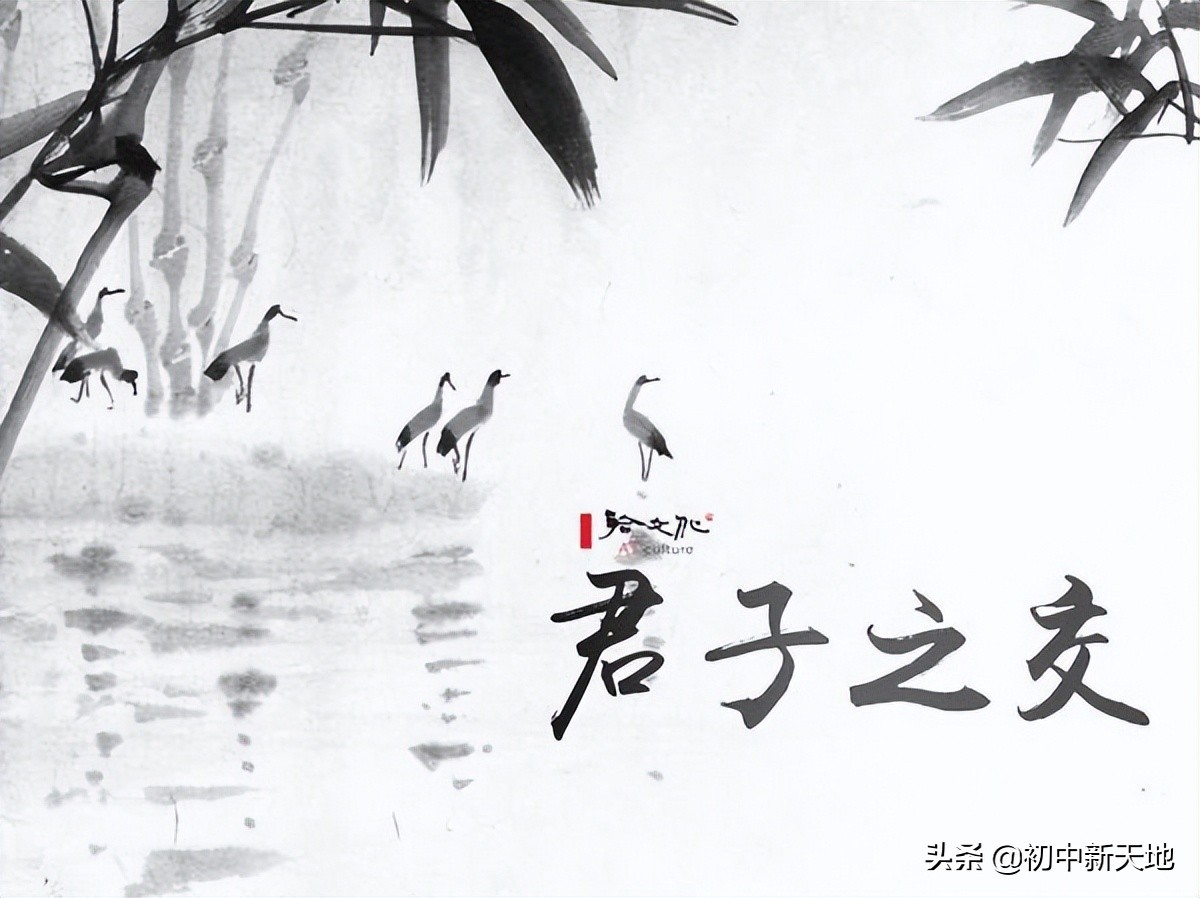 文化
culture
君子之交
头条 @初中新天地